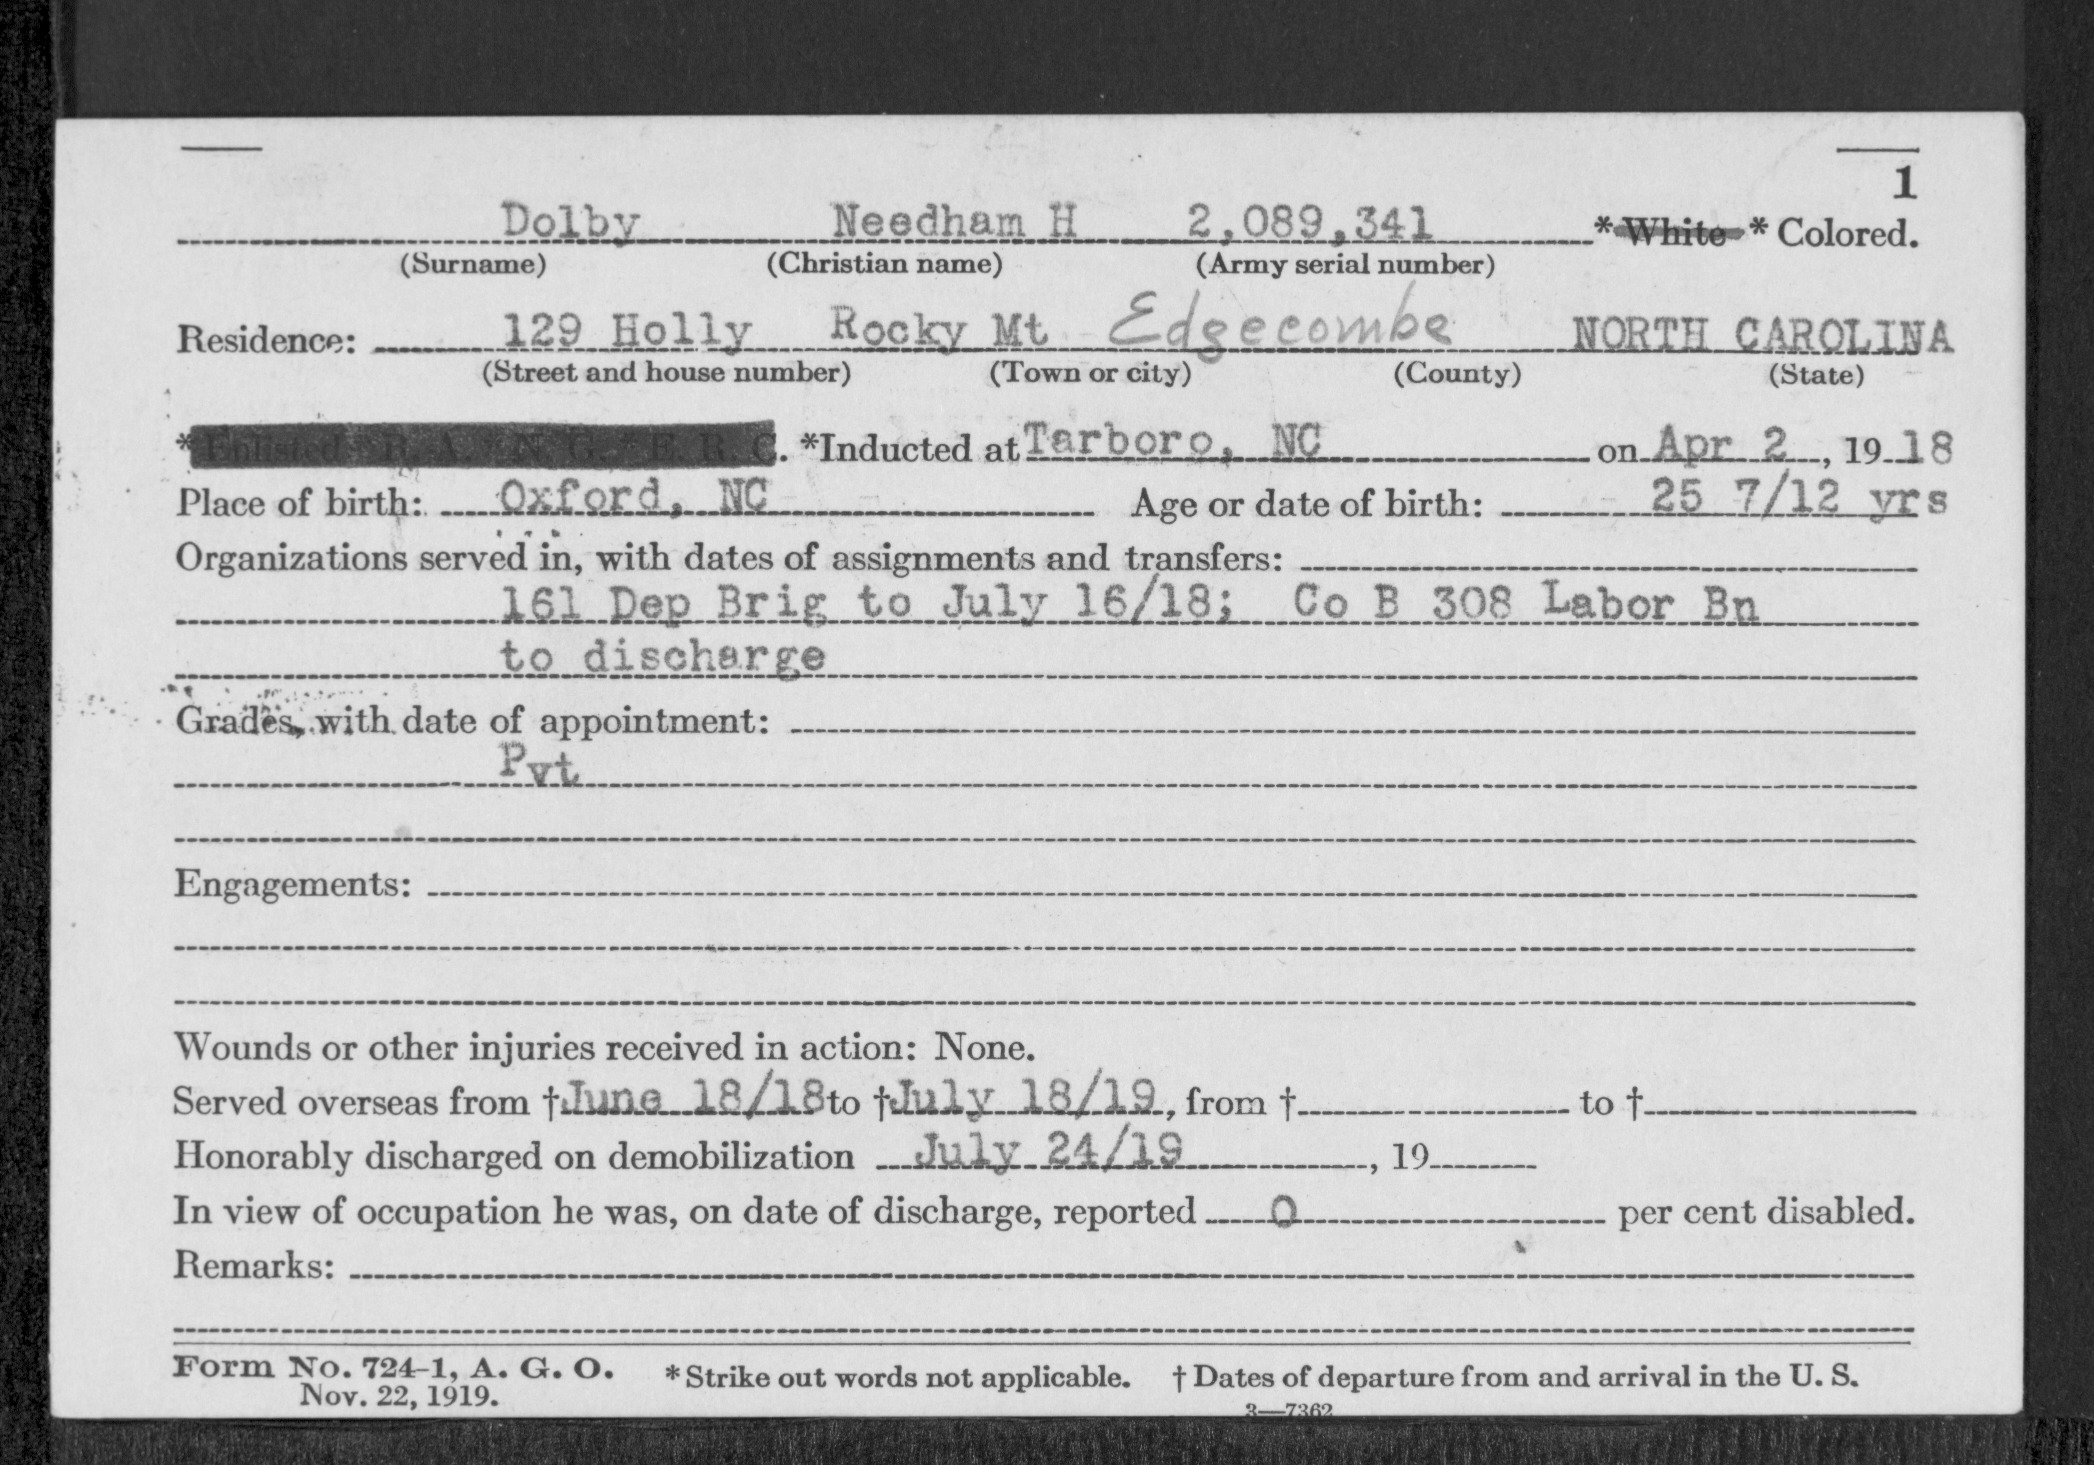 1
Dolby Needham H 2,089,341 * White * Colored.
(Surname) (Christian name) (Army serial number)
Residence: 129 Holly Rocky Mt Edgecombe NORTH CAROLINA
(Street and house number) (Town or city) (County) (State)
* Enlisted * R. A. * N. G. * E. R. C. *Inducted at Tarboro, NC on Apr 2, 19 18
Place of birth: Oxford, NC Age or date of birth: 25 7/12 yrs
Organizations served in, with dates of assignments and transfers:
161 Dep Brig to July 16/18; Co B 308 Labor Bn
to discharge
Grades, with date of appointment:
Pvt
Engagements:
Wounds or other injuries received in action: None.
Served overseas from †June 18/18 to †July 18/19, from † to †
Honorably discharged on demobilization July 24/19, 19
In view of occupation he was, on date of discharge, reported 0 per cent disabled.
Remarks:
Form No. 724-1, A. G. O. *Strike out words not applicable. †Dates of departure from and arrival in the U. S.
Nov. 22, 1919.
3—7362